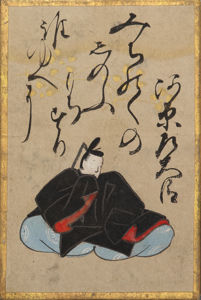 河原左大臣
みちのくの
しのふ
もちすり
誰ゆへに